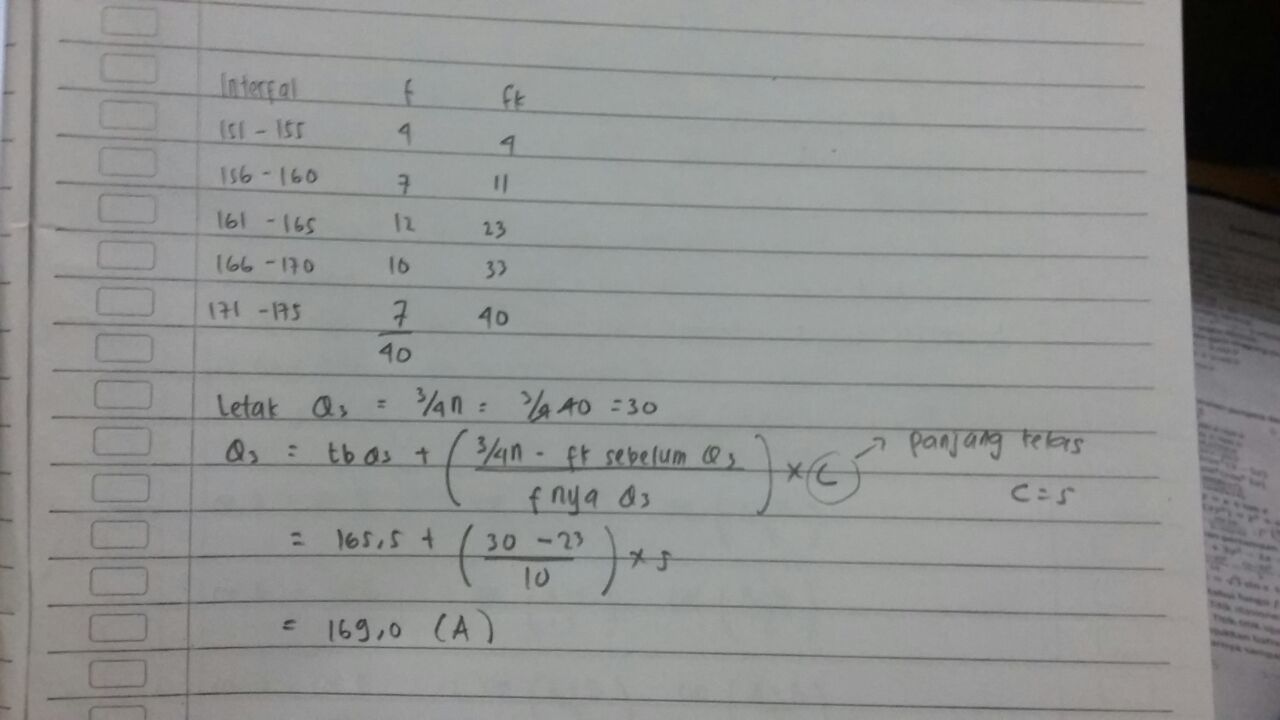 Interfal f fk
151 - 155 4 4
156 - 160 7 11
161 - 165 12 23
166 - 170 10 33
171 - 175 7 40
40
Letak Q3 = 3/4n = 3/4 40 = 30
Q3 = tb Q3 + ( 3/4n - fk sebelum Q3 / f nya Q3 ) × C → panjang kelas
C = 5
= 165,5 + ( 30 - 23 / 10 ) × 5
= 169,0 (A)